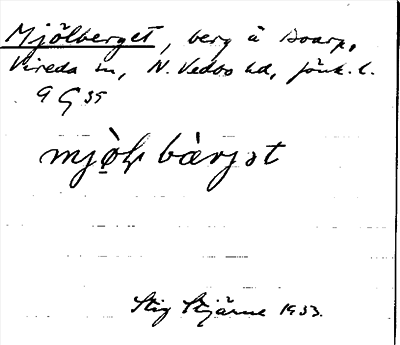 Mjölberget, berg å Boarp,
Vireda sn, N. Vedbo hd, Jönk. l.
9 G 35
mjò̤ɫbàrjət
Stig Stjärne 1933.